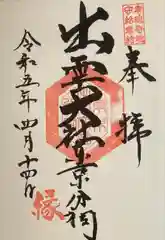 奉拝
出雲大社
東京分祠
令和五年四月十四日
縁